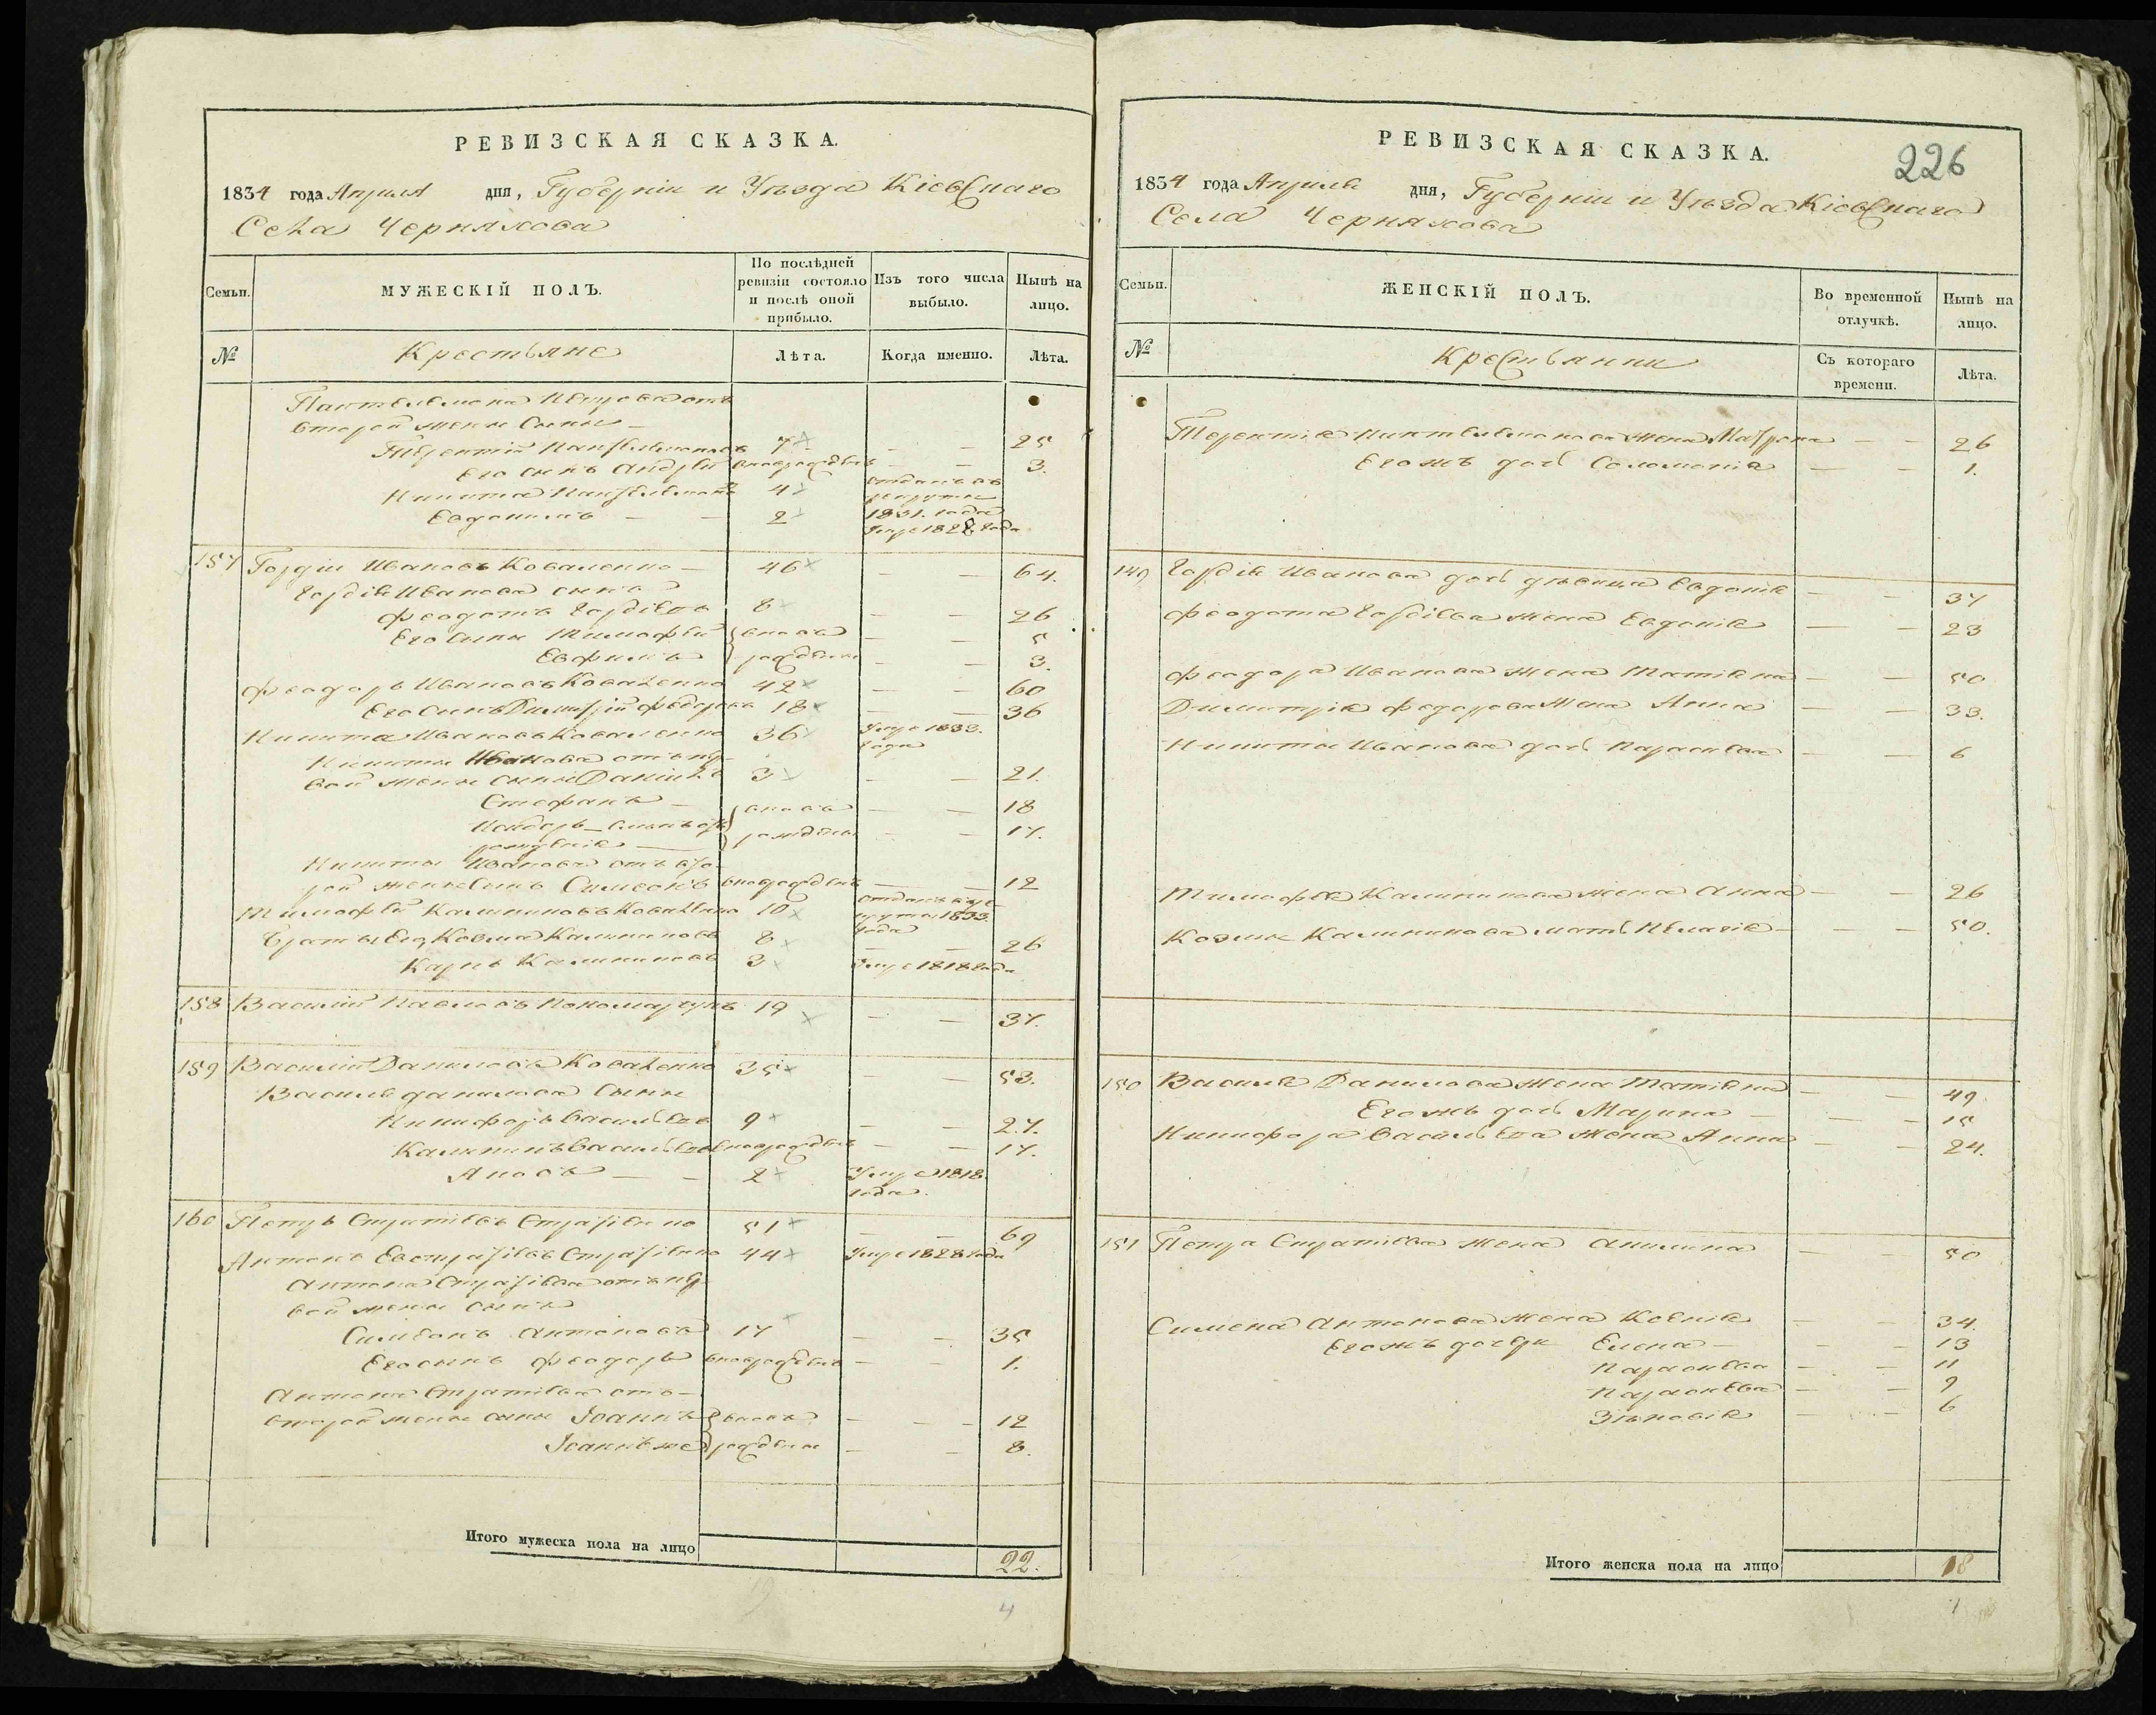 РЕВИЗСКАЯ СКАЗКА.
1834 года Апреля дня, Губерніи и Уѣзда Кіевскаго
Села Черняхова
Семьи. МУЖЕСКІЙ ПОЛЪ. По послѣдней ревизіи состояло и послѣ оной прибыло. Изъ того числа выбыло. Нынѣ на лицо.
№ Крестьяне Лѣта. Когда именно. Лѣта.
Пантелемона Петрова отъ
второй жены сыны —
Терентій Пантелемоновъ 7 — — 25
Его сынъ Андрей вновьрожденъ — — 3.
Никита Пантелемоновъ 4 отданъ въ рекруты 1831. года
Евдокимъ — — 2 Умре 1828 года
157 Гордій Ивановъ Коваленко — 46 — — 64.
Гордія Иванова сынъ
Феодотъ Гордіевъ 8 — — 26
Его сыны Тимофей вновь — — 5
Евфимъ рожденъ — — 3.
Феодоръ Ивановъ Коваленко 42 — — 60
Его сынъ Димитрій Федоровъ 18 — — 36
Никита Ивановъ Коваленко 36 Умре 1833. года
Никиты Иванова отъ пер-
вой жены сыны Даніилъ 3 — — 21.
Стефанъ — вновь — — 18
рожденъ — — 17.
Никиты Иванова отъ вто-
рой жены сынъ Симеонъ вновьрожденъ — — 12
Тимофей Калиниковъ Коваленко 10 отданъ въ рекруты 1833. года
Братъ Его Козма Калиниковъ 8 — — 26
Карпъ Калиниковъ 3 Умре 1818 года
158 Василій Павловъ Пономарчукъ 19 — — 37.
159 Василій Даниловъ Коваленко 35 — — 53.
Василя Данилова сыны
Никифоръ Васильевъ 9 — — 27.
Калининъ Васильевъ вновьрожденъ — — 17.
— — 2 Умре 1818 года.
160 Петръ Стратіевъ 51 — — 69
Антонъ Евстратіевъ 44 Умре 1828 года
Антона Стратіева отъ пер-
вой жены сынъ
Симеонъ Антоновъ 17 — — 35
Его сынъ Феодоръ вновьрожденъ — — 1.
Антона Стратіева отъ —
второй жены сыны Іоаннъ вновь — — 12
Іоаннъ же рожденъ — 8.
Итого мужеска пола на лицо 22.
226
РЕВИЗСКАЯ СКАЗКА.
1834 года Апреля дня, Губерніи и Уѣзда Кіевскаго
Села Черняхова
Семьи. ЖЕНСКІЙ ПОЛЪ. Во временной отлучкѣ. Нынѣ на лицо.
№ Крестьянки Съ котораго времени. Лѣта.
Терентія Пантелемонова жена Матрона — — 26
Егожъ дочь Соломонія — — 1.
149 Гордія Иванова дочь дѣвица Евдокія — — 37
Феодота Гордіева жена Евдокія — — 23
Феодора Иванова жена Татіяна — — 50
Димитрія Федорова жена Анна — — 33.
Никиты Иванова дочь Параскева — — 6
Тимофея Калиникова жена Анна — — 26
Козмы Калиникова мать Пелагія — — 50.
150 Василя Данилова жена Татіяна — — 49
Егожъ дочь Марина — — — 15
Никифора Васильева жена Анна — — 24.
151 Петра Стратіева жена Акилина — — 50
Симеона Антонова жена Ксенія — — 34.
Егожъ дочери Елена — — — 13
Параскева — — 11
Параскева — — 9
Зѣновія — — 6
Итого женска пола на лицо 18